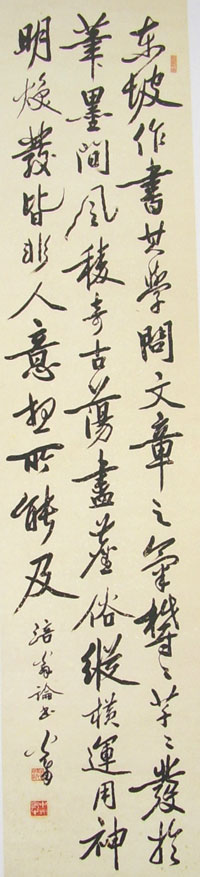 东坡作書其學問文章之氣鬱〻芊〻發於
筆墨間風稜奇古蕩盡塵俗縱橫運用神
明煥發皆非人意想所能及
涪翁論書 心畬